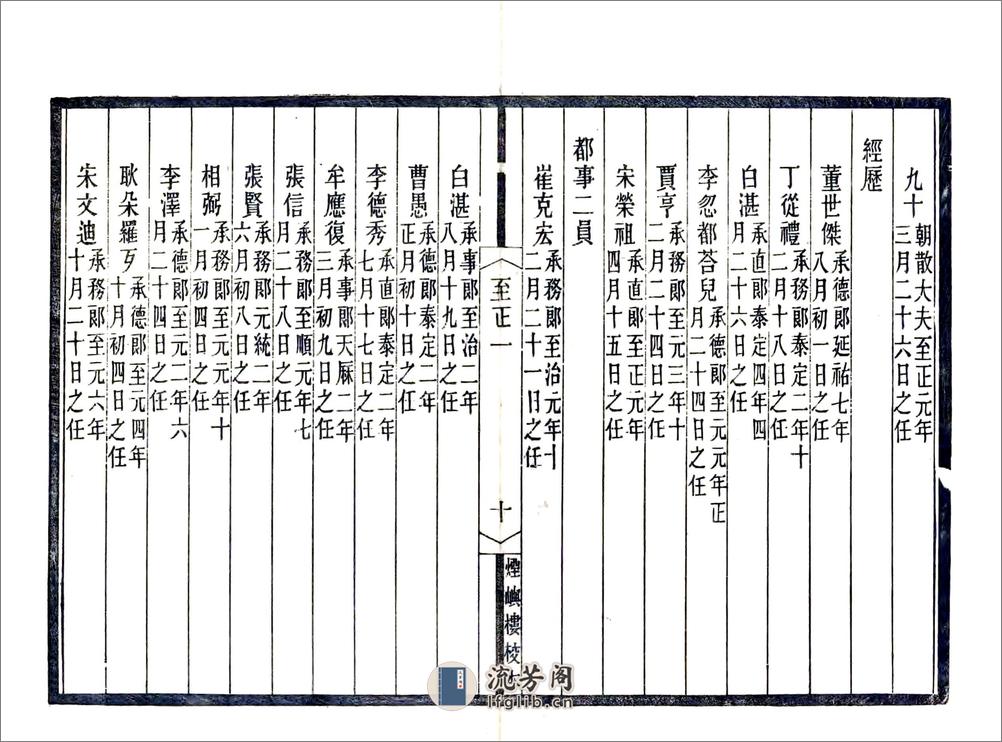 九十朝散大夫至正元年三月二十六日之任
經歷
董世傑承德郎延祐七年八月初一日之任
丁從禮承務郎泰定二年十二月十八日之任
白湛承直郎泰定四年四月二十六日之任
李忽都荅兒承德郎至元元年正月二十四日之任
賈亨承務郎至元三年十二月二十四日之任
宋榮祖承直郎至正元年四月十五日之任
都事二員
崔克宏承務郎至治元年十二月二十一日之任
至正一
十
煙嶼樓校
白湛承事郎至治二年八月十九日之任
曹愚承德郎泰定二年正月初十日之任
李德秀承直郎泰定二年七月十七日之任
牟應復承事郎天厤二年三月初九日之任
張信承務郎至順元年七月二十八日之任
張賢承務郎元統二年六月初八日之任
相弼承務郎至元元年十一月初四日之任
李澤承德郎至元二年六月二十四日之任
耿朵羅歹承德郎至元四年十月初四日之任
宋文迪承務郎至元六年十月二十日之任
流芳阁
lfglib.cn